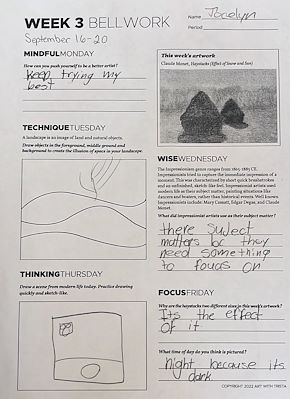 WEEK 3 BELLWORK
Name Jocelyn
Period
September 16-20
MINDFULMONDAY
How can you push yourself to be a better artist?
Keep trying my
best
TECHNIQUETUESDAY
A landscape is an image of land and natural objects.
Draw objects in the foreground, middle ground and
background to create the illusion of space in your landscape.
THINKINGTHURSDAY
Draw a scene from modern life today. Practice drawing
quickly and sketch-like.
This week's artwork
Claude Monet, Haystacks (Effect of Snow and Sun)
WISEWEDNESDAY
The Impressionism genre ranges from 1865-1885 CE.
Impressionists tried to capture the immediate impression of a
moment. This was characterized by short quick brushstrokes
and an unfinished, sketch-like feel. Impressionist artists used
modern life as their subject matter, painting situations like
dancers and boaters, rather than historical events. Well known
Impressionists include: Mary Cassatt, Edgar Degas, and Claude
Monet.
What did impressionist artists use as their subject matter?
there Suject
matters bc they
need something
to foucs on
FOCUSFRIDAY
Why are the haystacks two different sizes in this week's artwork?
Its the effect
of it
What time of day do you think is pictured?
Night because its
dark
COPYRIGHT 2022 ART WITH TRISTA